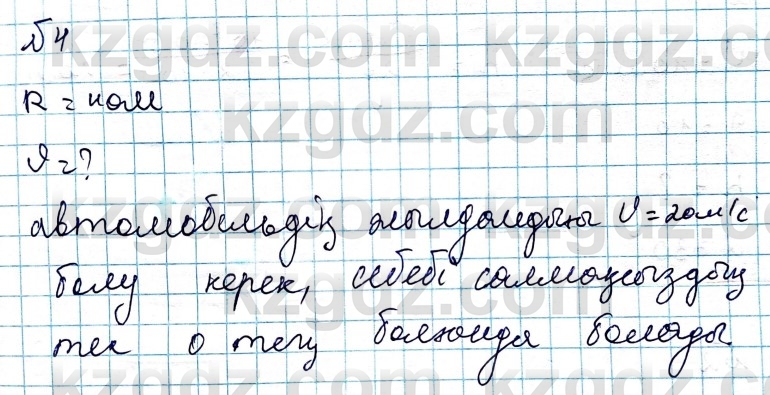 №4
R = 40м
υ = ?
автомобильдің жылдамдығы υ = 20м/с
болу керек, себебі салмақсыздық
тек 0 тең болғанда болады.
kzgdz.com